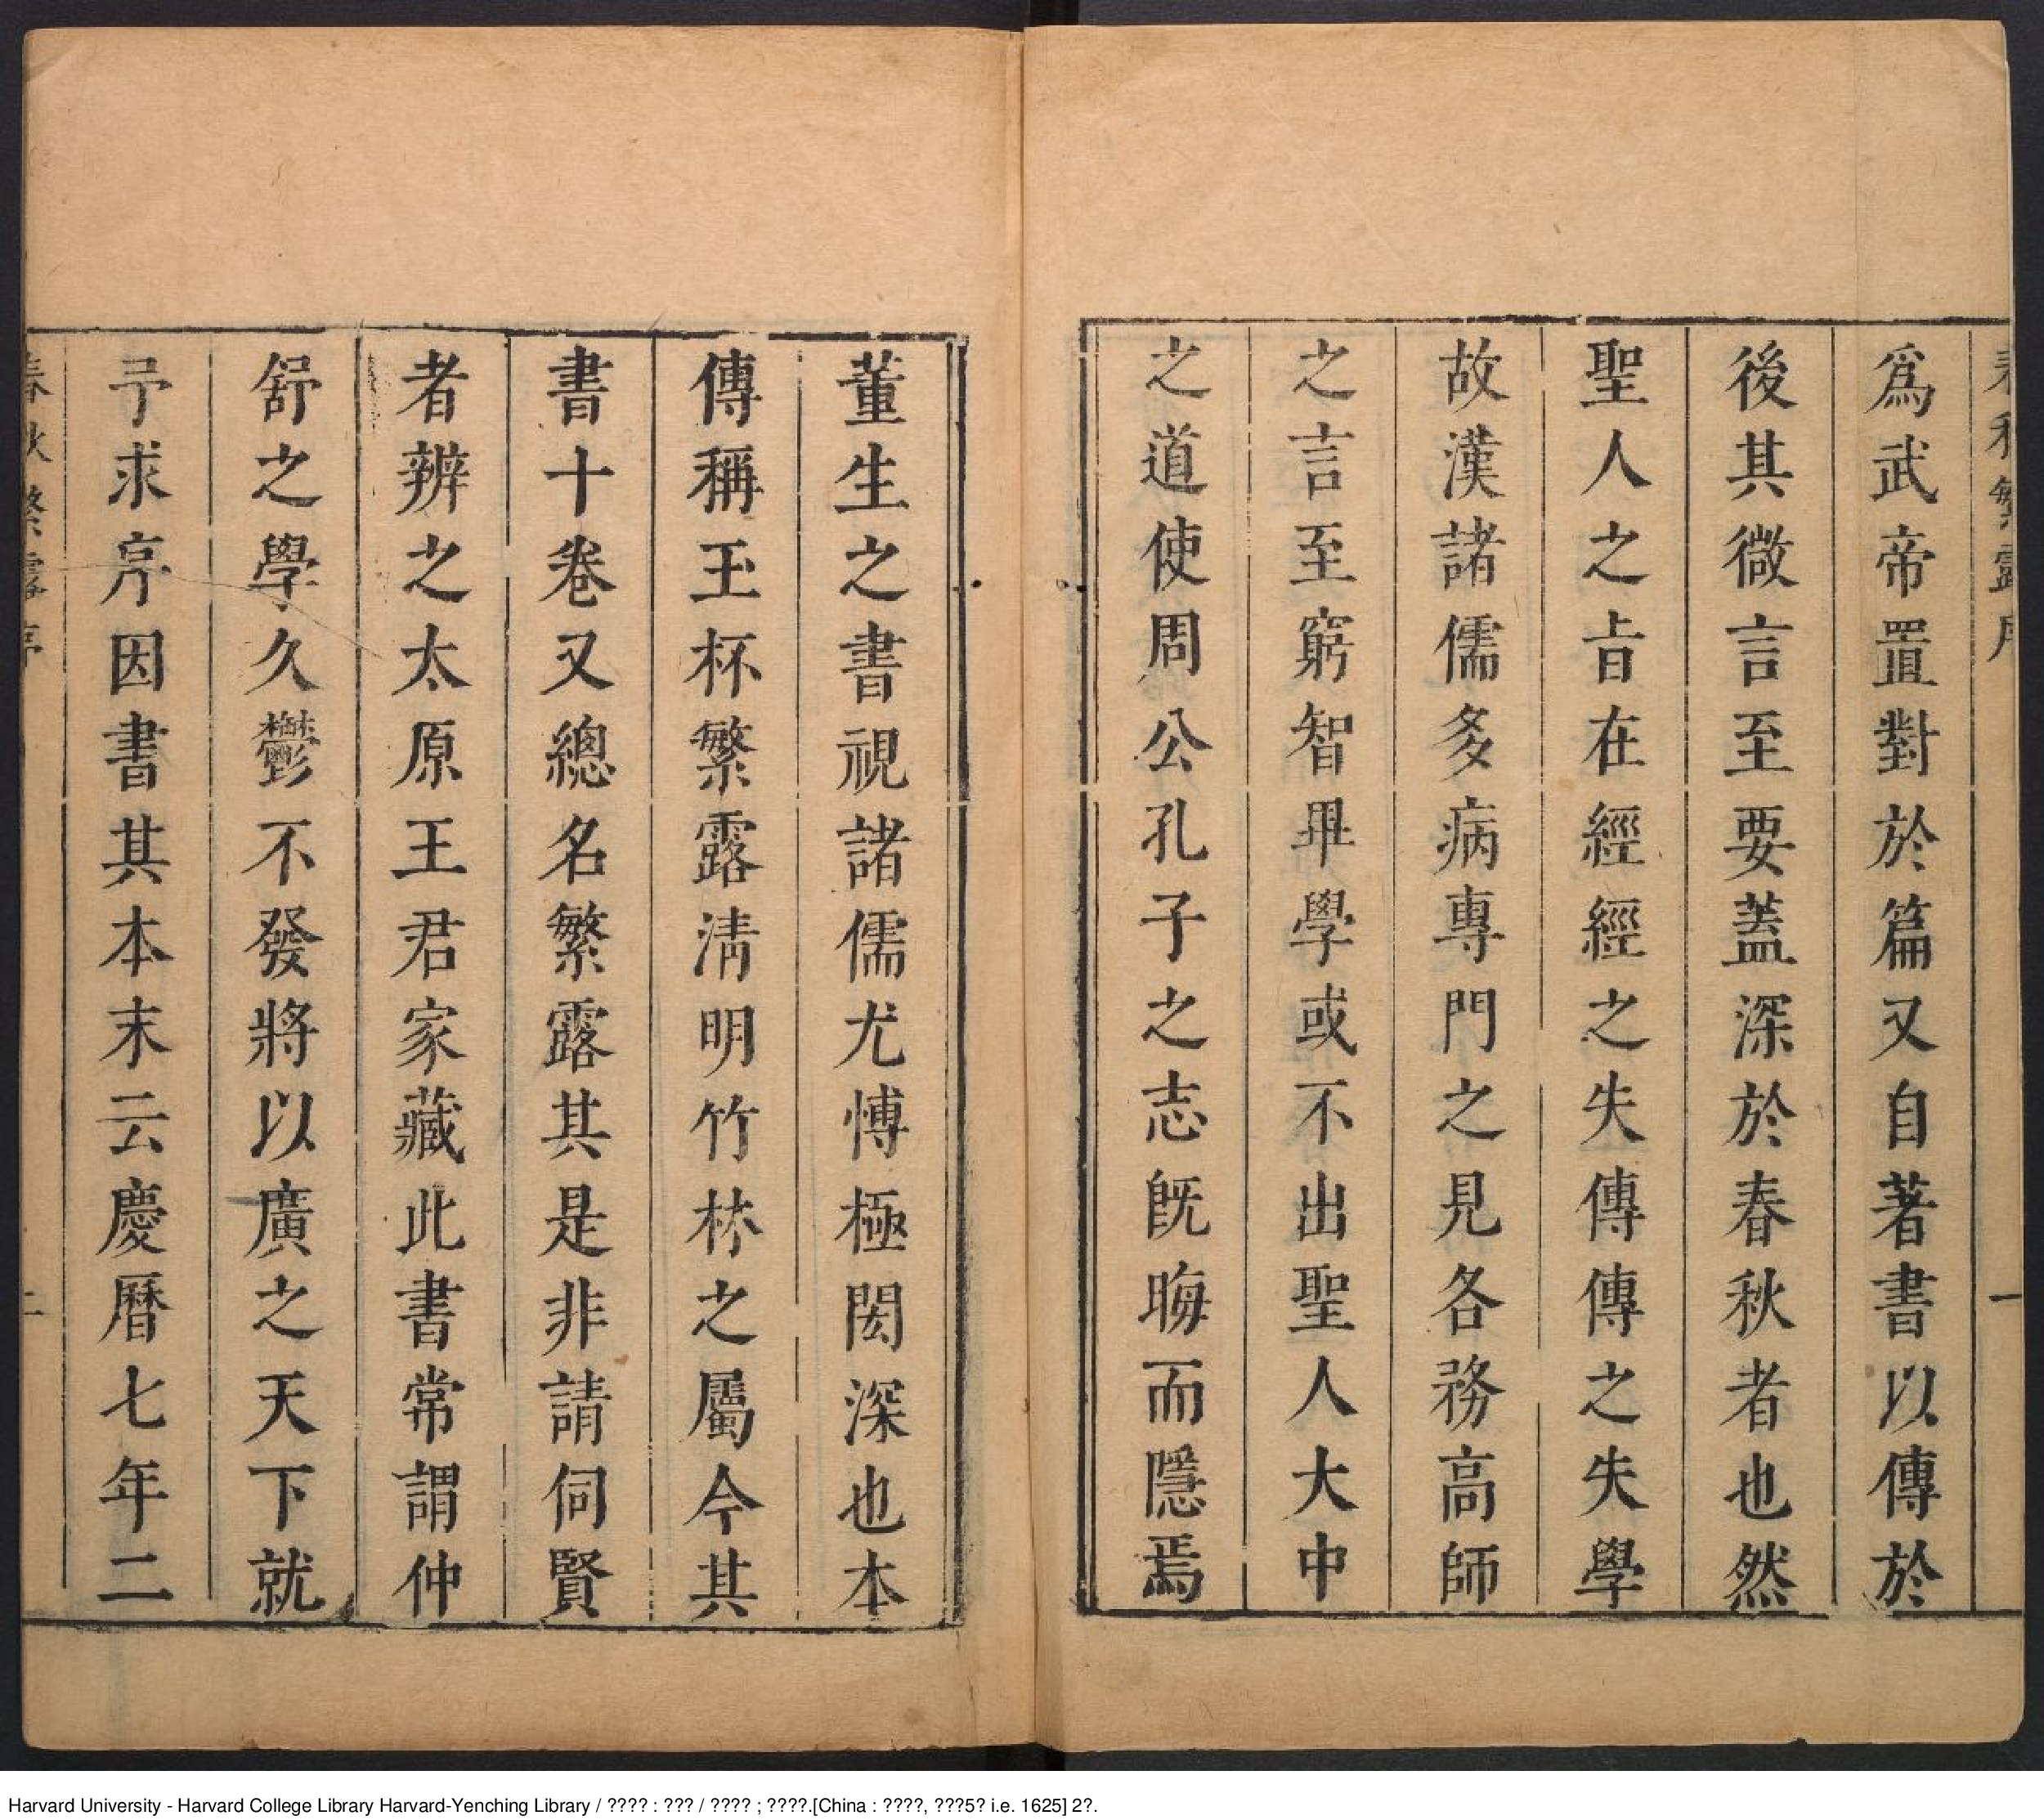 春秋繁露序
一
爲武帝置對於篇又自著書以傳於
後其微言至要蓋深於春秋者也然
聖人之㫖在經經之失傳傳之失學
故漢諸儒多病專門之見各務高師
之言至窮智畢學或不出聖人大中
之道使周公孔子之志旣晦而隱焉
董生之書視諸儒尤愽極閎深也本
傳稱玉杯繁露淸明竹林之屬今其
書十卷又總名繁露其是非請伺賢
者辨之太原王君家藏此書常謂仲
舒之學久鬱不發將以廣之天下就
予求序因書其本末云慶曆七年二
春秋繁露序
二
Harvard University - Harvard College Library Harvard-Yenching Library / ???? : ??? / ???? ; ????.[China : ????, ???5? i.e. 1625] 2?.